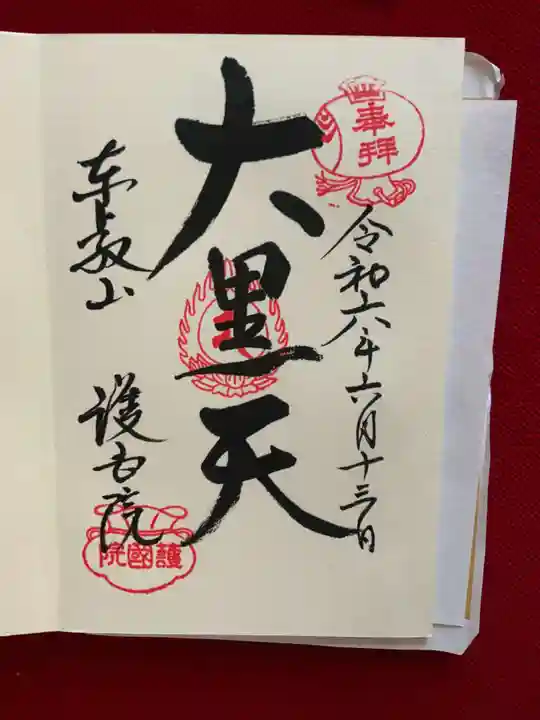 奉拝
令和六年六月十三日
大黒天
東叡山
護国院
護國院